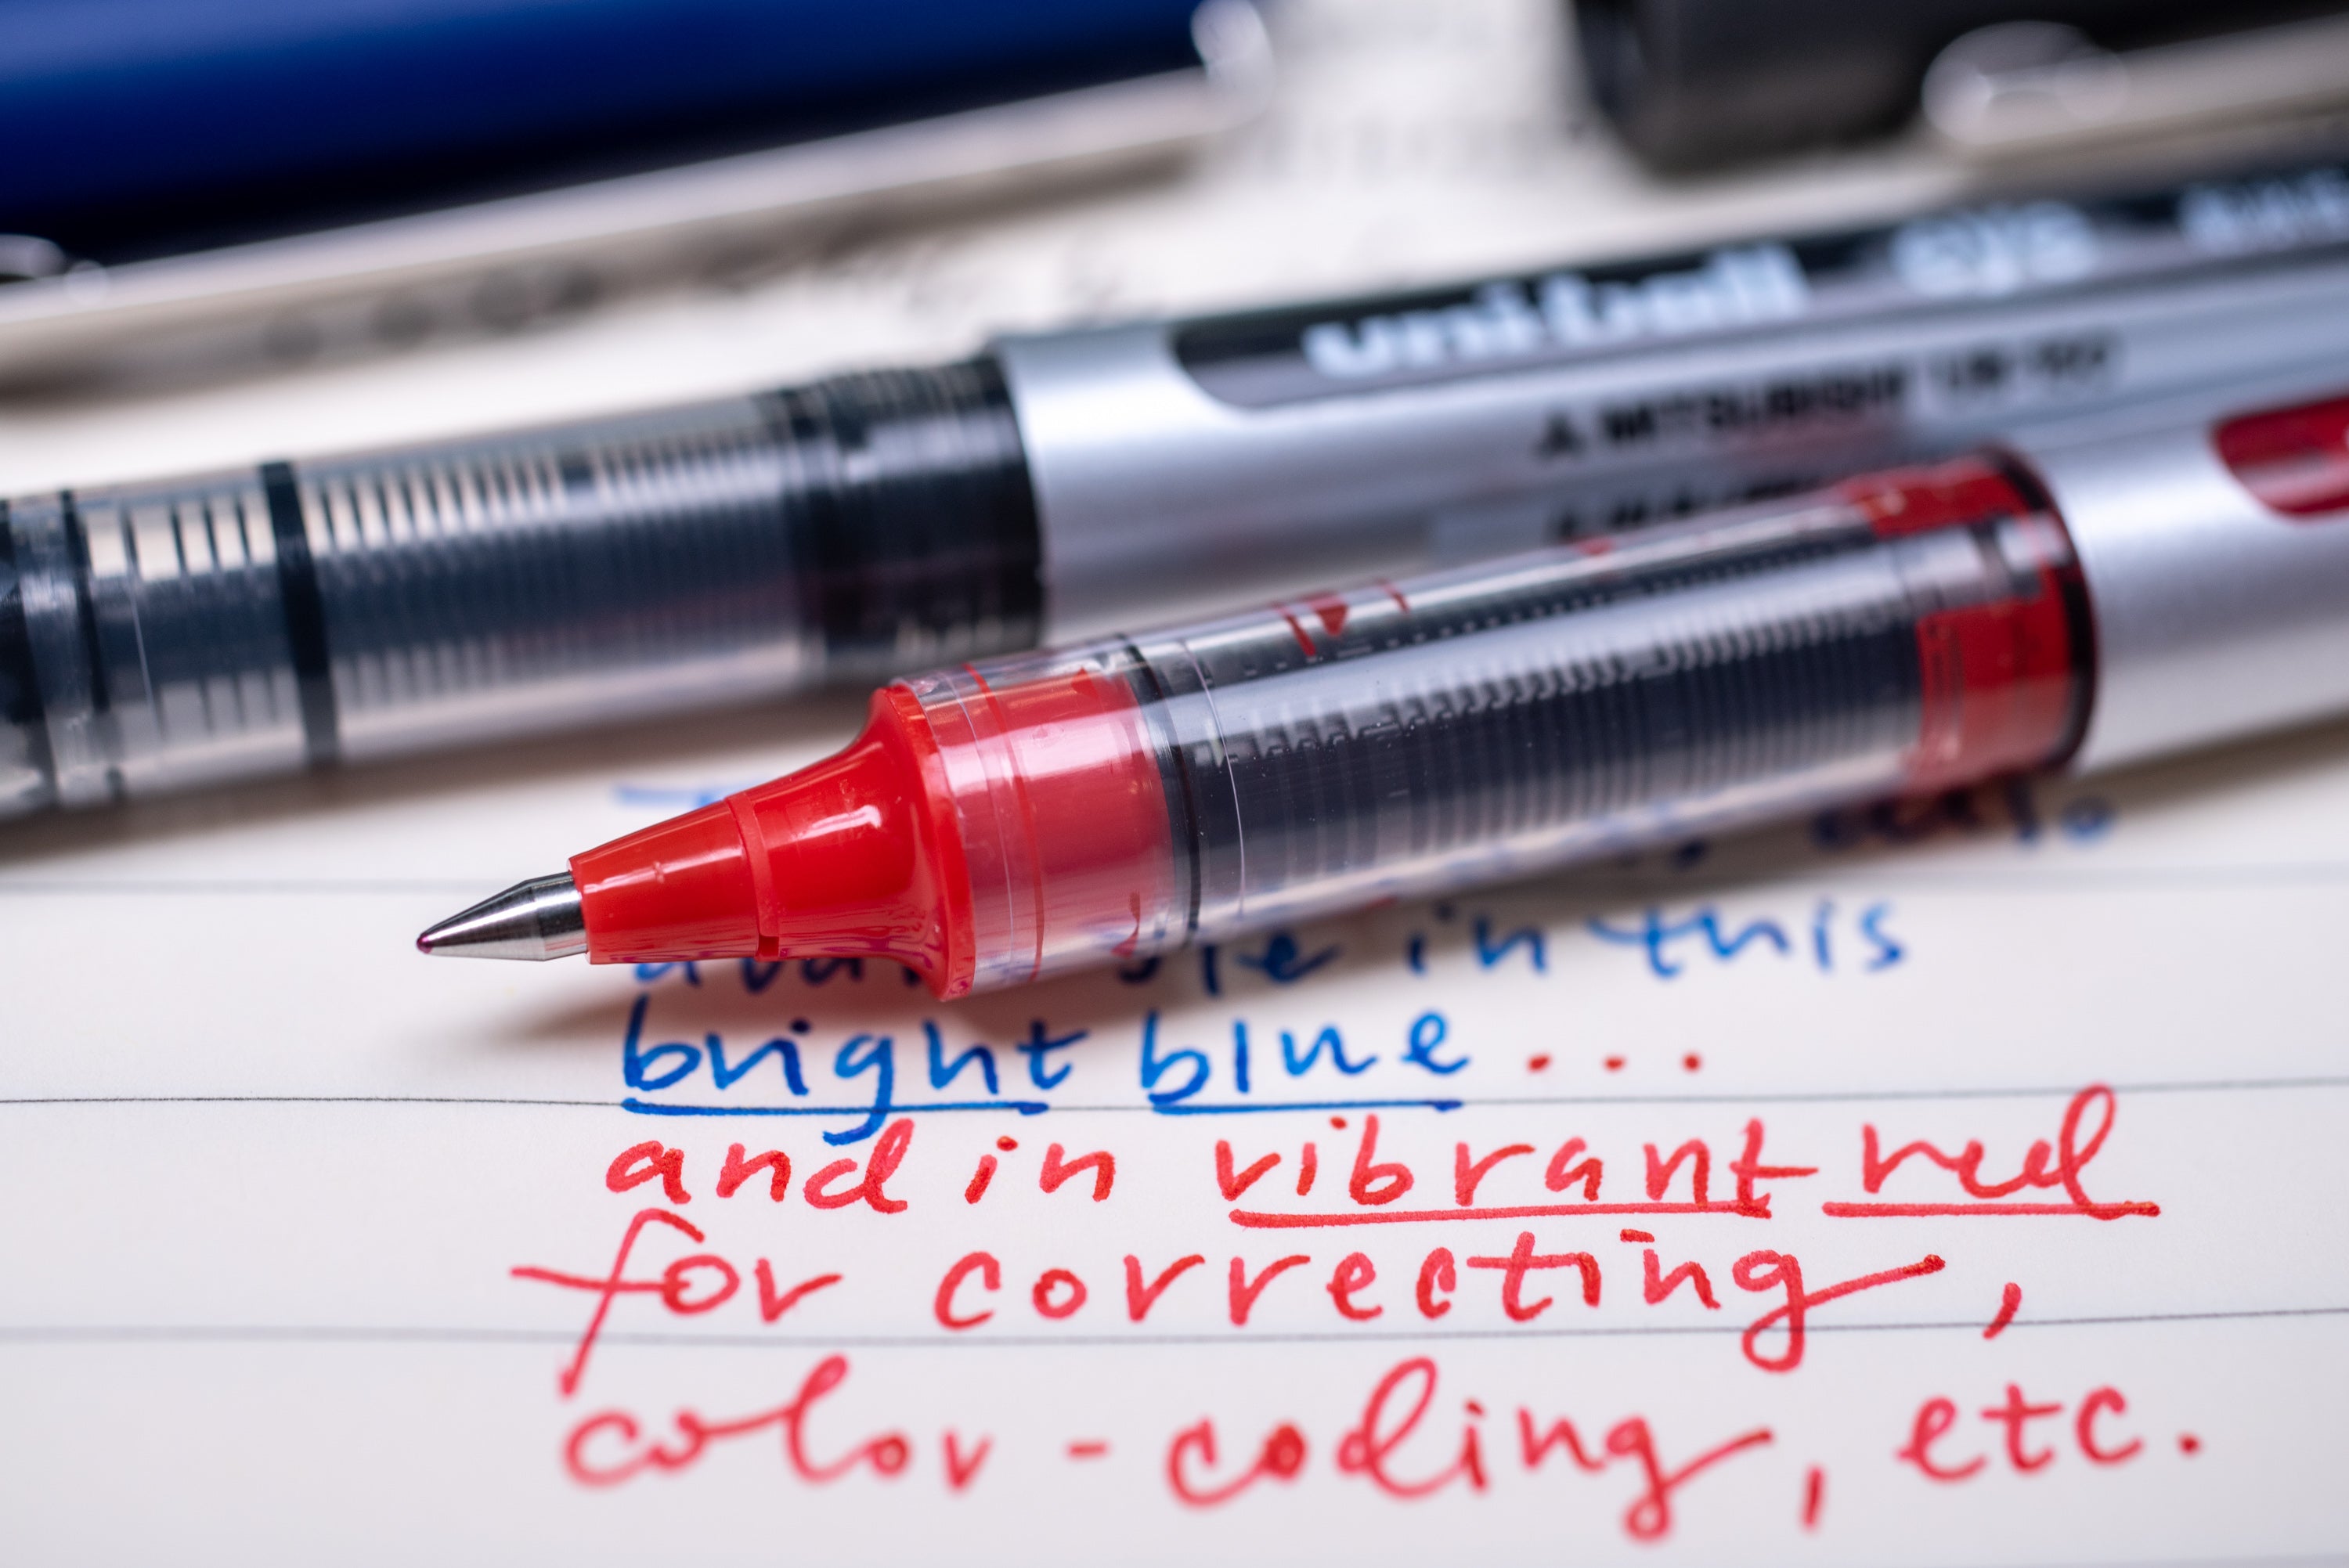 uni-ball eye
MITSUBISHI UB-157
in this
bright blue...
and in vibrant red
for correcting,
color-coding, etc.